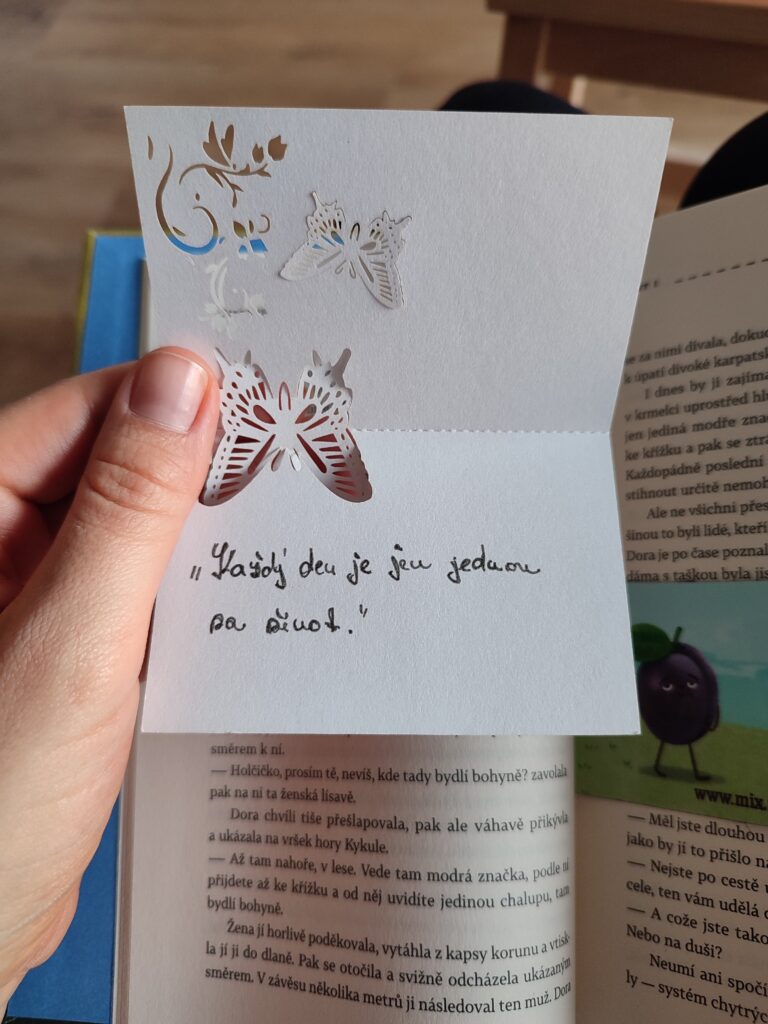 „Každý den je jen jednou
za život."
směrem k ní.
— Holčičko, prosím tě, nevíš, kde tady bydlí bohyně? zavolala
pak na ni ta ženská lísavě.
Dora chvíli tiše přešlapovala, pak ale váhavě přikývla
a ukázala na vršek hory Kykule.
— Až tam nahoře, v lese. Vede tam modrá značka, podle ní
přijdete až ke křížku a od něj uvidíte jedinou chalupu, tam
bydlí bohyně.
Žena jí horlivě poděkovala, vytáhla z kapsy korunu a vtisk-
la jí ji do dlaně. Pak se otočila a svižně odcházela ukázaným
směrem. V závěsu několika metrů ji následoval ten muž. Dora
se za nimi dívala, dokud
k úpatí divoké karpatsk
I dnes by ji zajíma
v krmelci uprostřed hlu
jen jediná modře znač
ke křížku a pak se ztra
Každopádně poslední
stihnout určitě nemoh
Ale ne všichni přes
šinou to byli lidé, kteří
Dora je po čase poznal
dáma s taškou byla jis
www.mix.
— Měl jste dlouhou
jako by jí to přišlo na
— Nejste po cestě u
cele, ten vám udělá č
— A cože jste tako
Nebo na duši?
Neumí ani spoči
ly — systém chytrýc